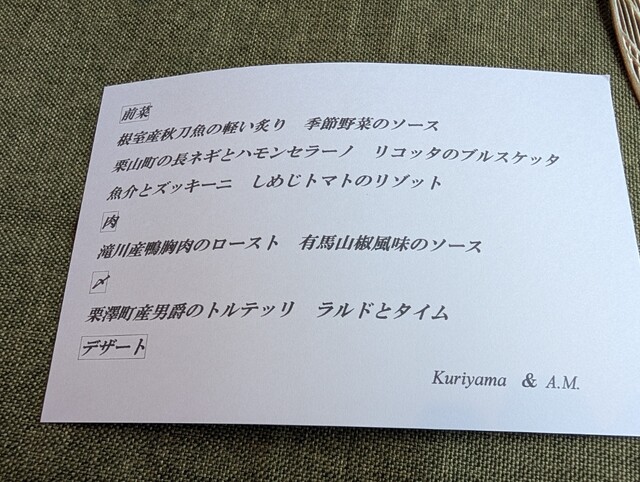 前菜
根室産秋刀魚の軽い炙り　季節野菜のソース
栗山町の長ネギとハモンセラーノ　リコッタのブルスケッタ
魚介とズッキーニ　しめじトマトのリゾット
肉
滝川産鴨胸肉のロースト　有馬山椒風味のソース
〆
栗澤町産男爵のトルテッリ　ラルドとタイム
デザート
Kuriyama & A.M.